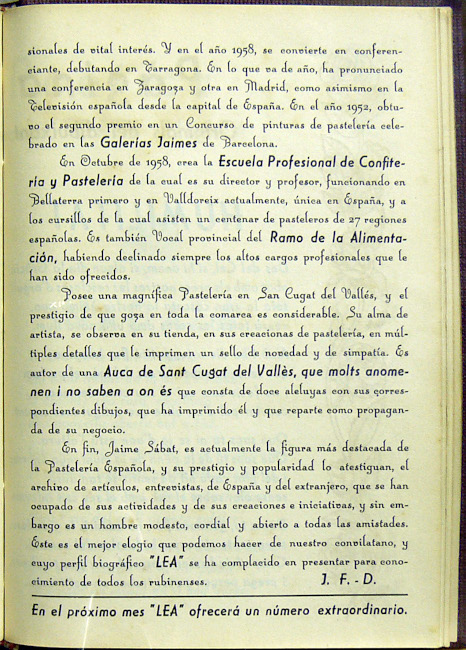 sionales de vital interés. Y en el año 1958, se convierte en conferen-
ciante, debutando en Tarragona. En lo que va de año, ha pronunciado
una conferencia en Zaragoza y otra en Madrid, como asimismo en la
Televisión española desde la capital de España. En el año 1952, obtu-
vo el segundo premio en un Concurso de pinturas de pastelería cele-
brado en las Galerías Jaimes de Barcelona.
En Octubre de 1958, crea la Escuela Profesional de Confite-
ría y Pastelería de la cual es su director y profesor, funcionando en
Bellaterra primero y en Valldoreix actualmente, única en España, y a
los cursillos de la cual asisten un centenar de pasteleros de 27 regiones
españolas. Es también Vocal provincial del Ramo de la Alimenta-
ción, habiendo declinado siempre los altos cargos profesionales que le
han sido ofrecidos.
Posee una magnífica Pastelería en San Cugat del Vallés, y el
prestigio de que goza en toda la comarca es considerable. Su alma de
artista, se observa en su tienda, en sus creacionas de pastelería, en múl-
tiples detalles que le imprimen un sello de novedad y de simpatía. Es
autor de una Auca de Sant Cugat del Vallès, que molts anome-
nen i no saben a on és que consta de doce aleluyas con sus corres-
pondientes dibujos, que ha imprimido él y que reparte como propagan-
da de su negocio.
En fin, Jaime Sábat, es actualmente la figura más destacada de
la Pastelería Española, y su prestigio y popularidad lo atestiguan, el
archivo de artículos, entrevistas, de España y del extranjero, que se han
ocupado de sus actividades y de sus creaciones e iniciativas, y sin em-
bargo es un hombre modesto, cordial y abierto a todas las amistades.
Este es el mejor elogio que podemos hacer de nuestro convilatano, y
cuyo perfil biográfico "LEA" se ha complacido en presentar para cono-
cimiento de todos los rubinenses. J. F. - D.
En el próximo mes "LEA" ofrecerá un número extraordinario.